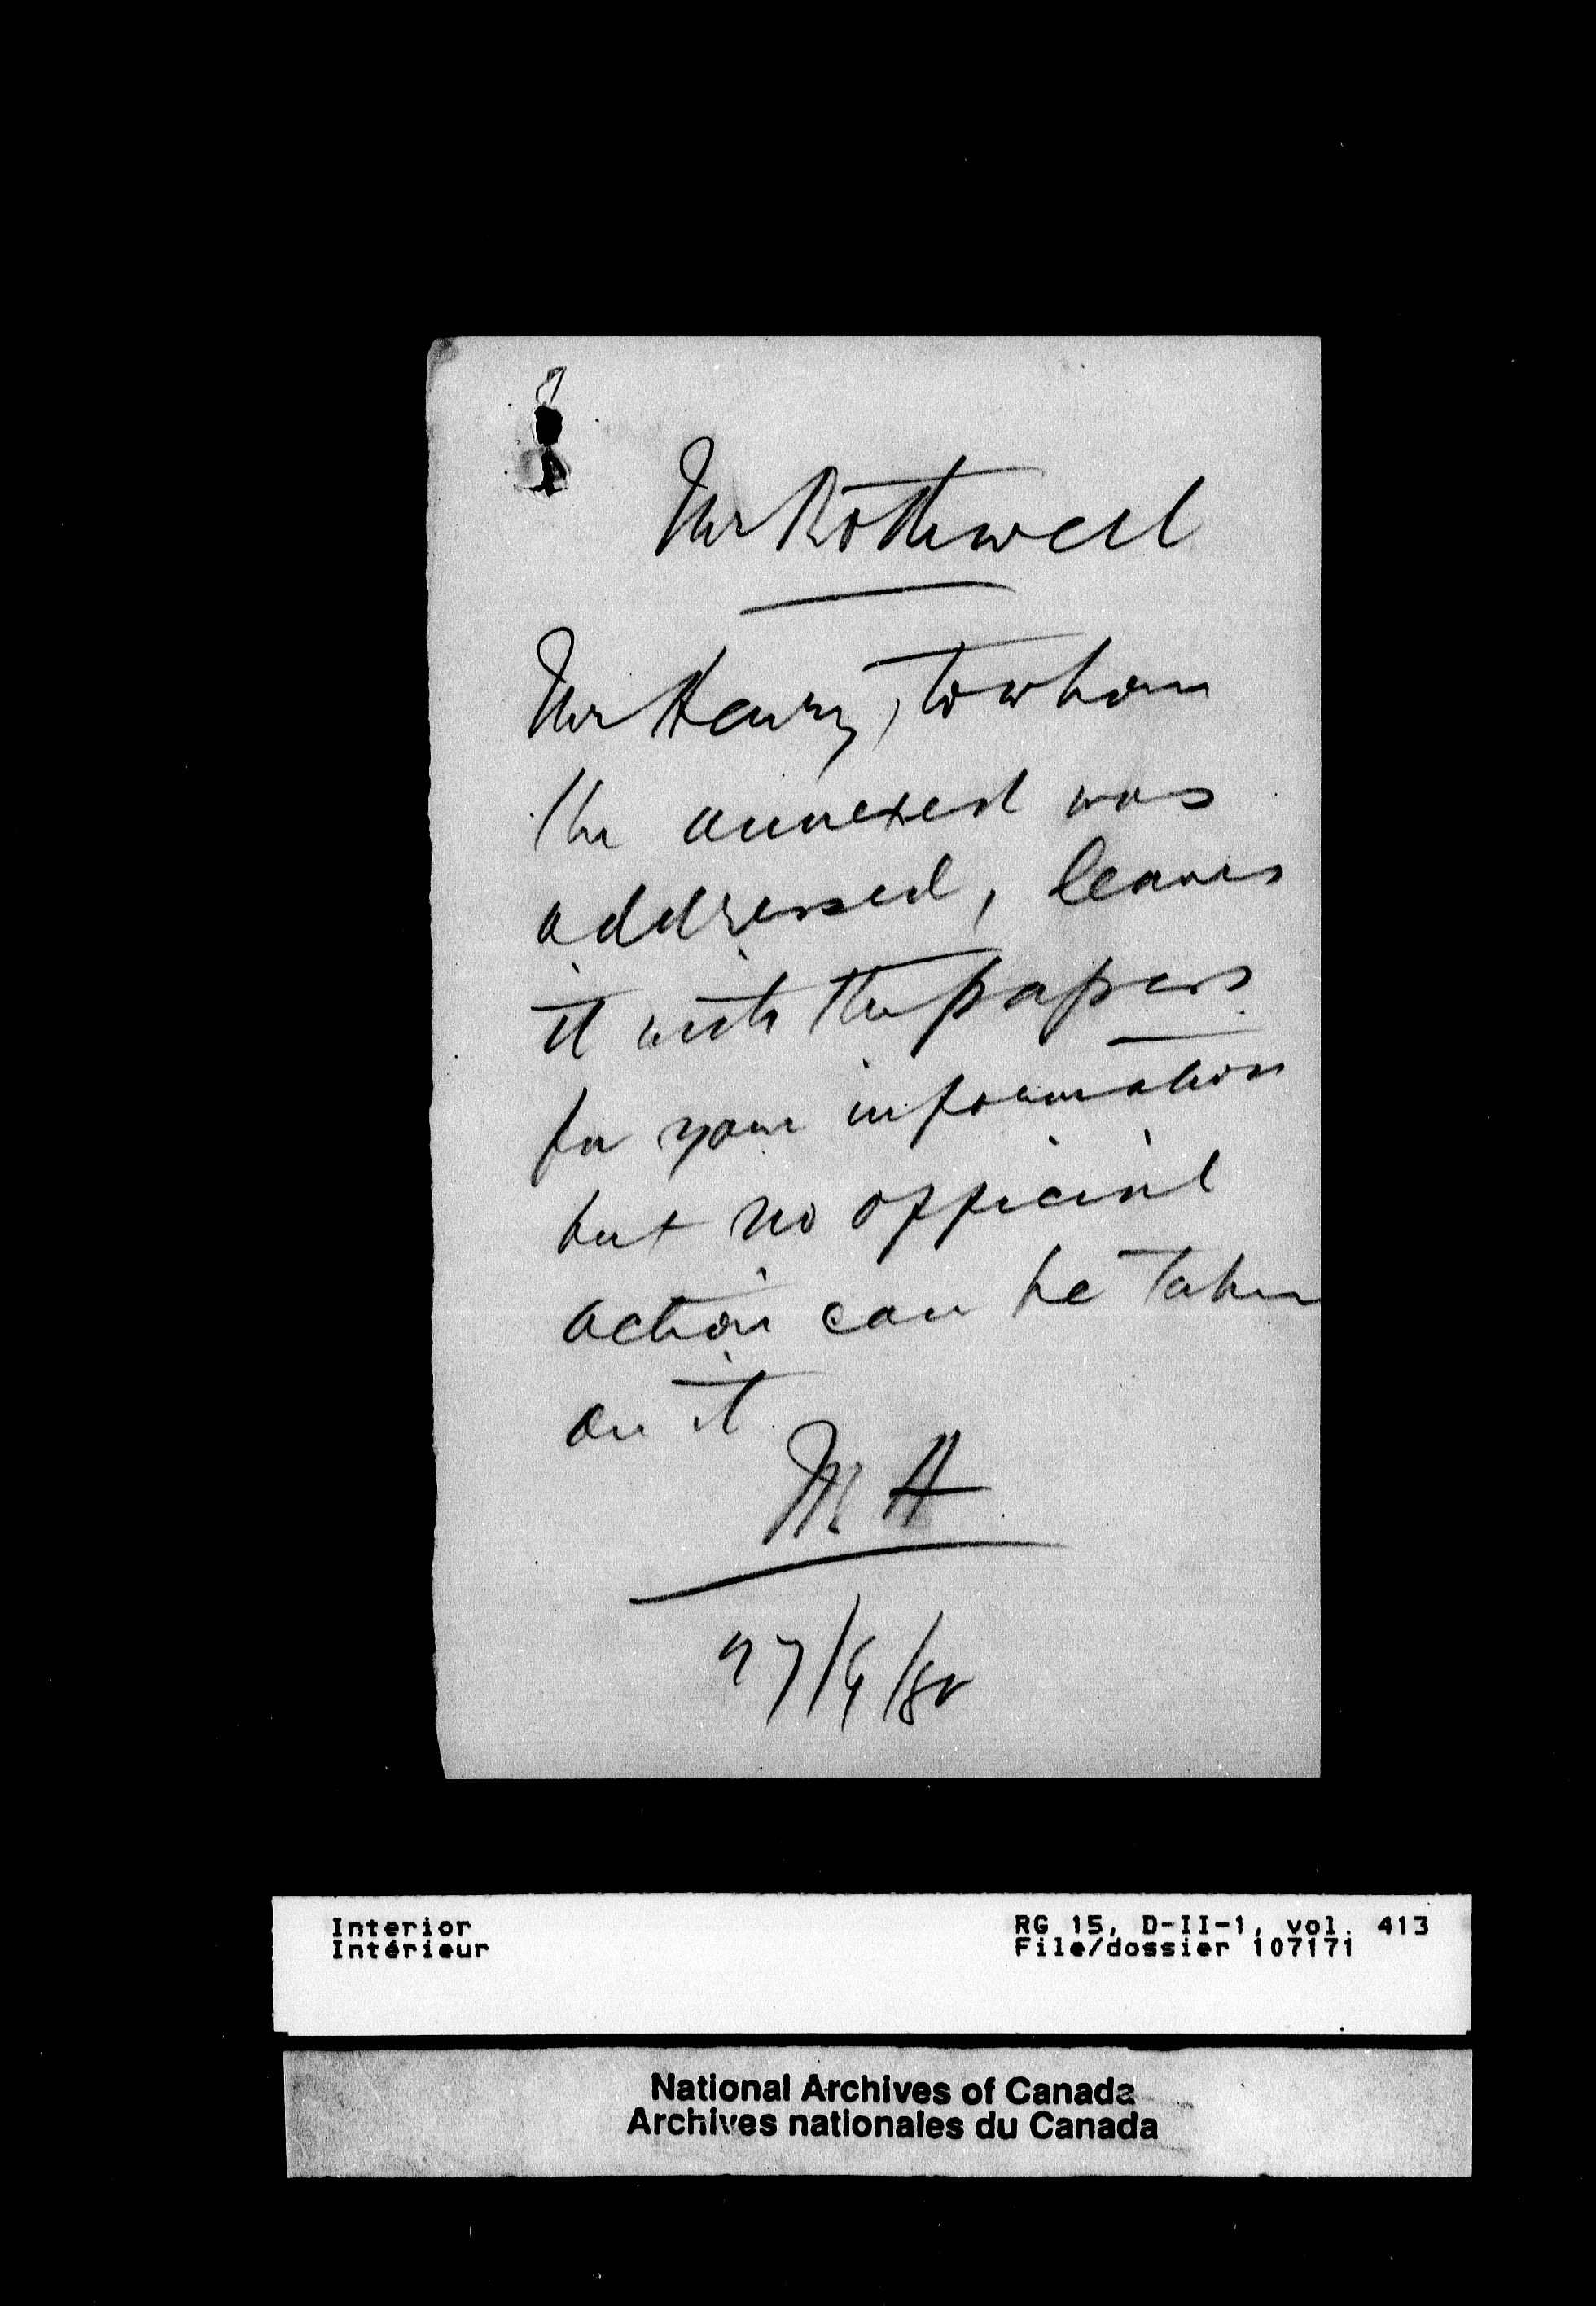 Mr Rothwell
Mr Henry, to whom
the annexed was
addressed, leaves
it with the papers
for your information
but no official
action can be taken
on it.
M H
Interior
Intérieur
RG 15, D-II-1, vol. 413
File/dossier 107171
National Archives of Canada
Archives nationales du Canada